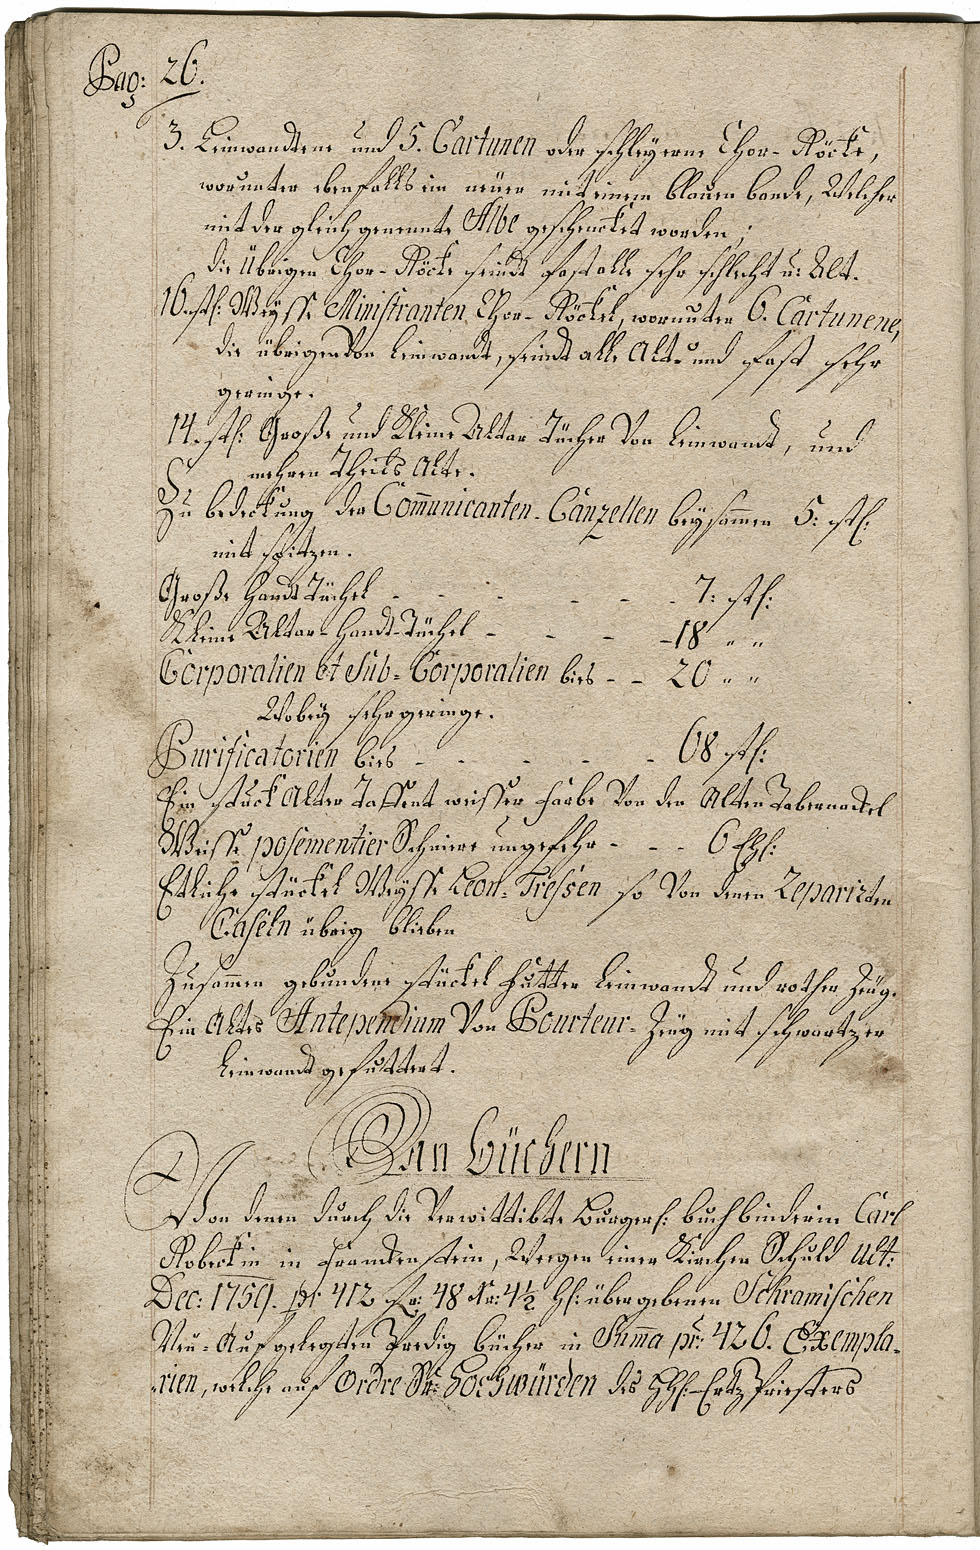 Pag: 26.
3. Leinwandtene und 5. Cartunen oder schleyerne Chor-Röcke,
worunter ebenfalls ein neuer mit einem blauen bande, Welcher
mit der gleich genennte Albe geschencket worden;
die übrigen Chor-Röcke seindt fast alle sehr schlecht u: Alt.
16. stk: Weysse Ministranten Chor-Röckel, worunter 6. Cartunene,
die übrigen Von Leinwandt, seindt alle Alt und fast sehr
geringe.
14. stk: Große und Kleine Altar Tücher Von Leinwandt, und
mehren Theils Alte.
Zu bedeckung der Com̄unicanten-Canzellen beysam̄en 5: stk:
mit spitzen.
Große Handt Tüchel - - - - - - 7: stk:
Kleine Altar-Handt-Tüchel - - - - 18 " "
Corporalien et Sub-Corporalien bies - - 20 " "
Wobey sehr geringe.
Purificatorien bies - - - - - 68 stk:
Ein stuck Alter Taffent weisser farbe Von den Alten Tabernackel
Weisse posementier Schnire ungefehr - - - 6 Ehl:
Etliche stückel Weysse Leon-Tressen so Von denen Reparirten
Caseln übrig blieben
Zusam̄en gebundene stückel futter Leinwandt und rother Zeüg.
Ein Altes Antependium Von Bourteur-Zeüg mit schwartzer
Leinwandt gefuttert.
An Büchern
Von denen durch die Verwittibte Burgerl: buchbinderin Carl
Robeckin in Franckenstein, Wegen einer Kirchen Schuld Ult:
Dec: 1759. pr: 412 fr: 48 Xr: 4½ hl: übergebenen Schramischen
Neu-Aufgelegten Predig bücher in Sum̄a pr: 426. Exempla-
rien, welche auf Ordre Sr: Hochwürden des HH: Ertz Priesters